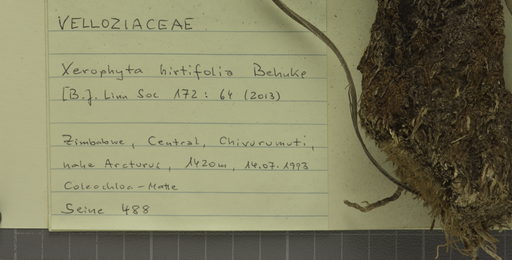 VELLOZIACEAE
Xerophyta hirtifolia Behnke
[B.J. Linn Soc 172: 64 (2013)
Zimbabwe, Central, Chivurumuti,
nahe Arcturus, 1420m, 14.07.1993
Coleochloa-Matte
Seine 488